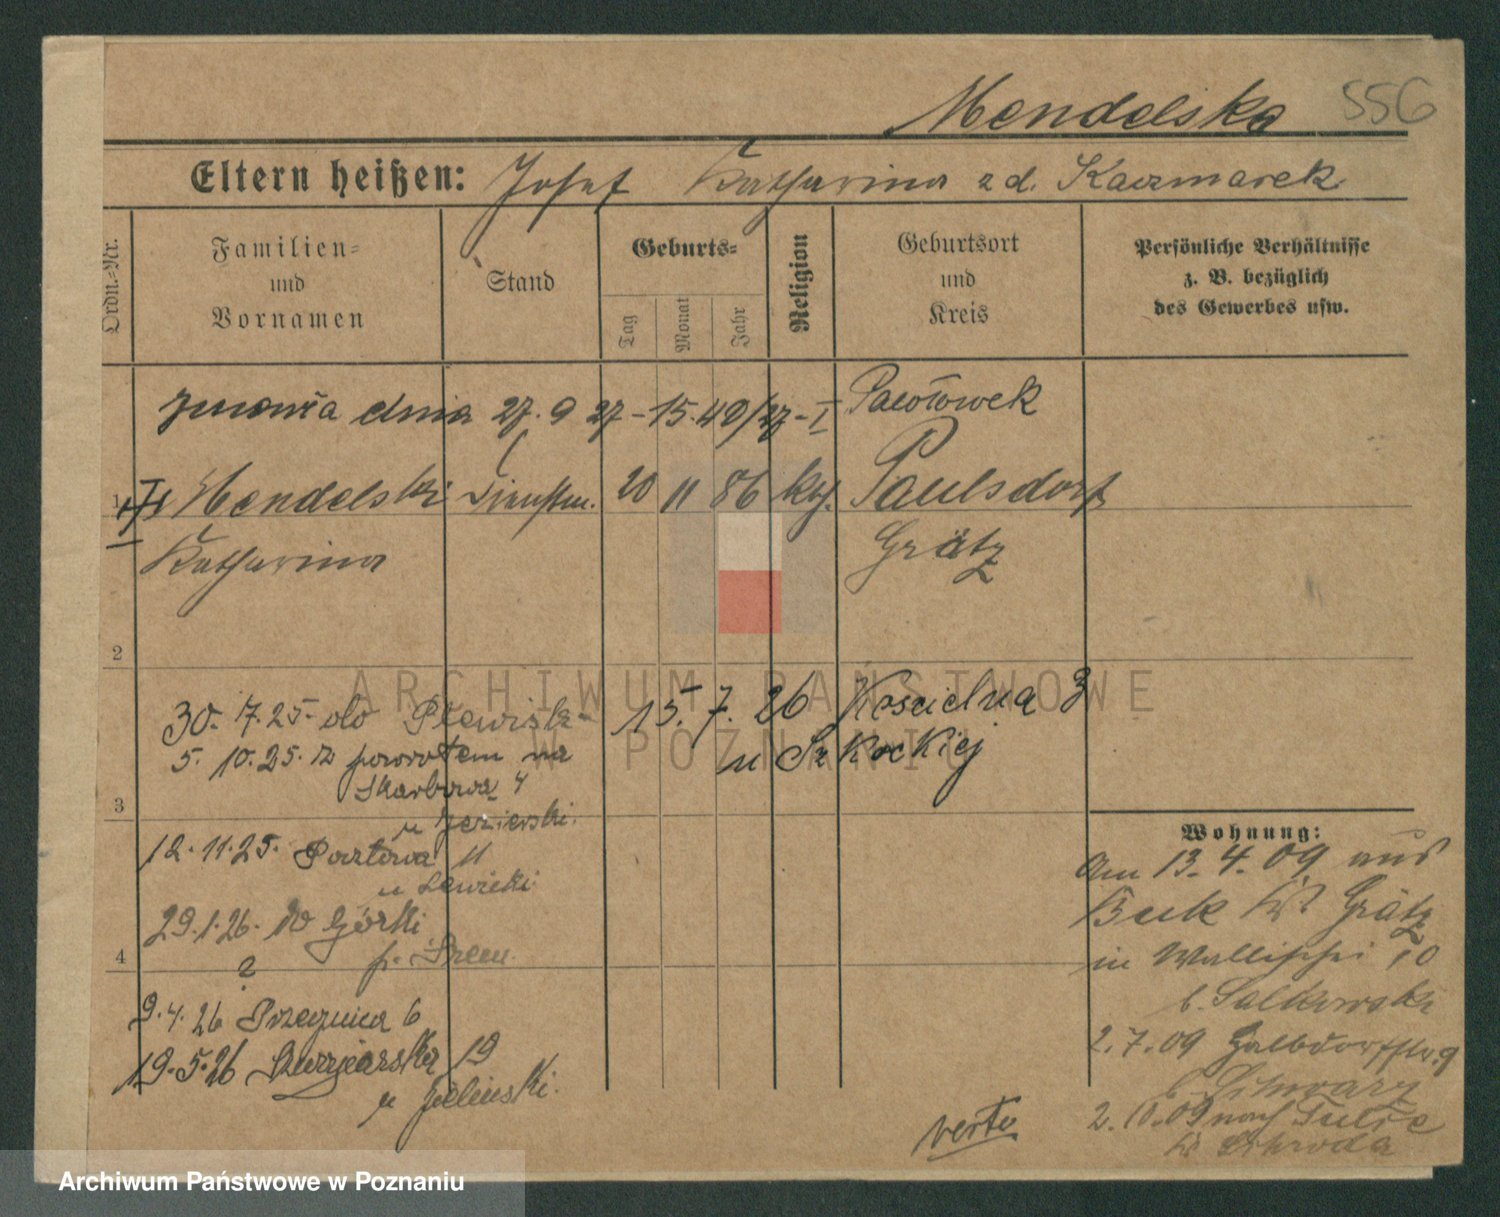 Mendelska 556
Eltern heißen: Josef Katharina z d. Kaczmarek
Ordn.-Nr.
Familien-
und
Vornamen
Stand
Geburts-
Tag
Monat
Jahr
Religion
Geburtsort
und
Kreis
Persönliche Verhältnisse
z. B. bezüglich
des Gewerbes usw.
zmarła dnia 27. 9 27 - 15.49/27 - I
Pawłówek
1 Mendelski Dienstm. 20 11 86 kth. Paulsdorf
Katharina Grätz
2
30. 7. 25 do Plewisk
5. 10. 25. z powrotem na
Skarbowa 4
u Jezierski.
3
15. 7. 26 Kościelna 3
u Szkockiej
12. 11. 25. Pocztowa 11
u Sawicki
29. 1. 26. do Górki
p. Śrem.
?
4
9. 4. 26 Przecznica 6
19. 5. 26 19
u Jeliński.
Wohnung:
Am 13. 4. 09 aus
Buk Kr. Grätz
in Wallischei 10
b. Salkowski
2. 7. 09 Halbdorfstr. 9
b. Schwarz
2. 10. 09 nach Tulce
Kr. Schroda
verte
ARCHIWUM PAŃSTWOWE
W POZNANIU
Archiwum Państwowe w Poznaniu